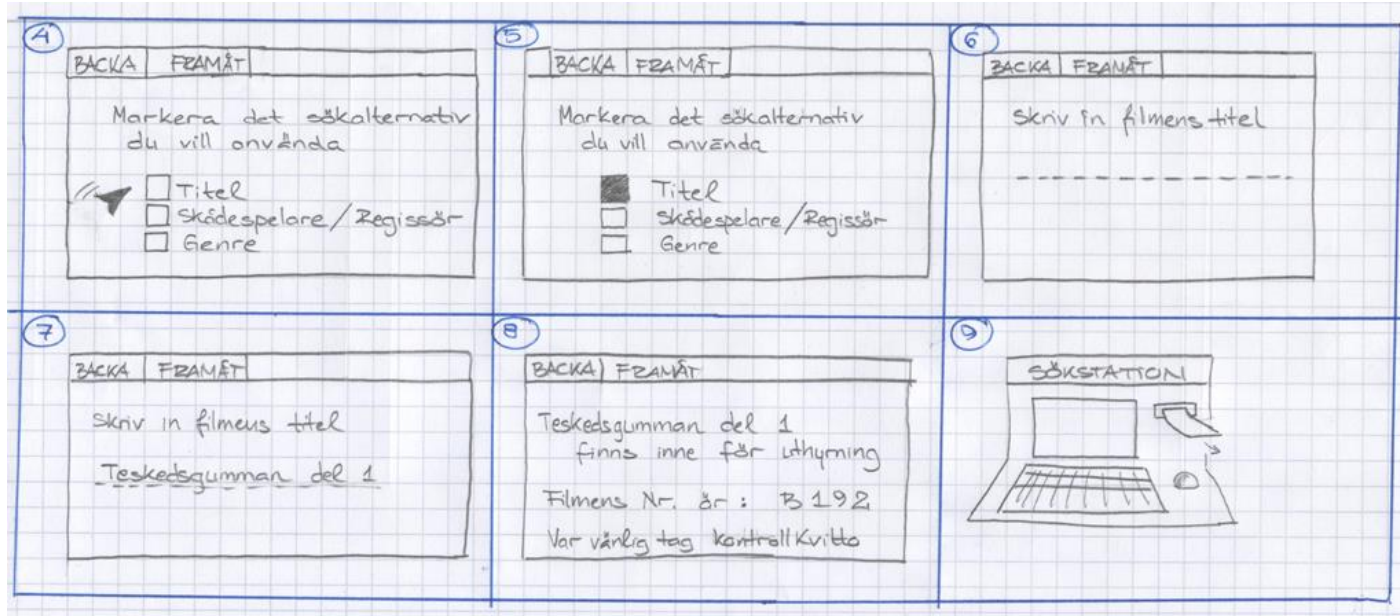 4
BACKA FRAMÅT
Markera det sökalternativ
du vill använda
Titel
Skådespelare/Regissör
Genre
5
BACKA FRAMÅT
Markera det sökalternativ
du vill använda
Titel
Skådespelare/Regissör
Genre
6
BACKA FRAMÅT
Skriv in filmens titel
7
BACKA FRAMÅT
Skriv in filmens titel
Teskedsgumman del 1
8
BACKA FRAMÅT
Teskedsgumman del 1
finns inne för uthyrning
Filmens Nr. är : B192
Var vänlig tag kontrollkvitto
9
SÖKSTATION